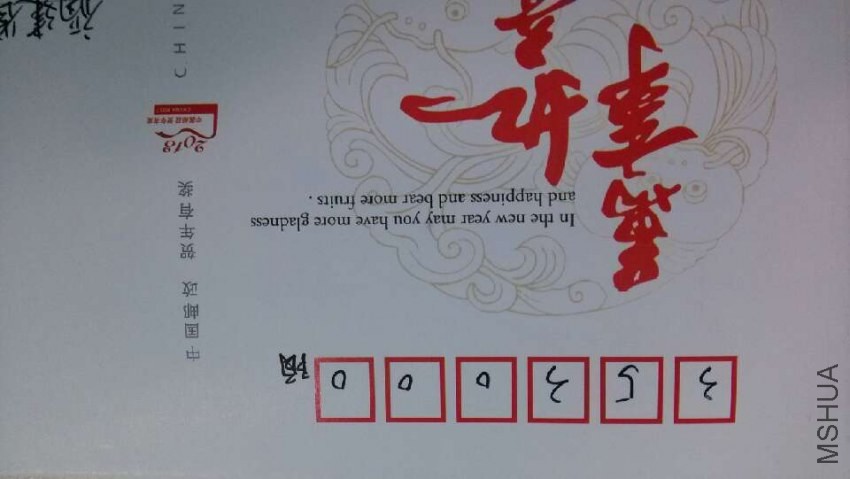 353000
萬事
如
In the new year may you have more gladness
and happiness and bear more fruits .
中国邮政 贺年有奖
2018
CHIN
福建省
MSHUA